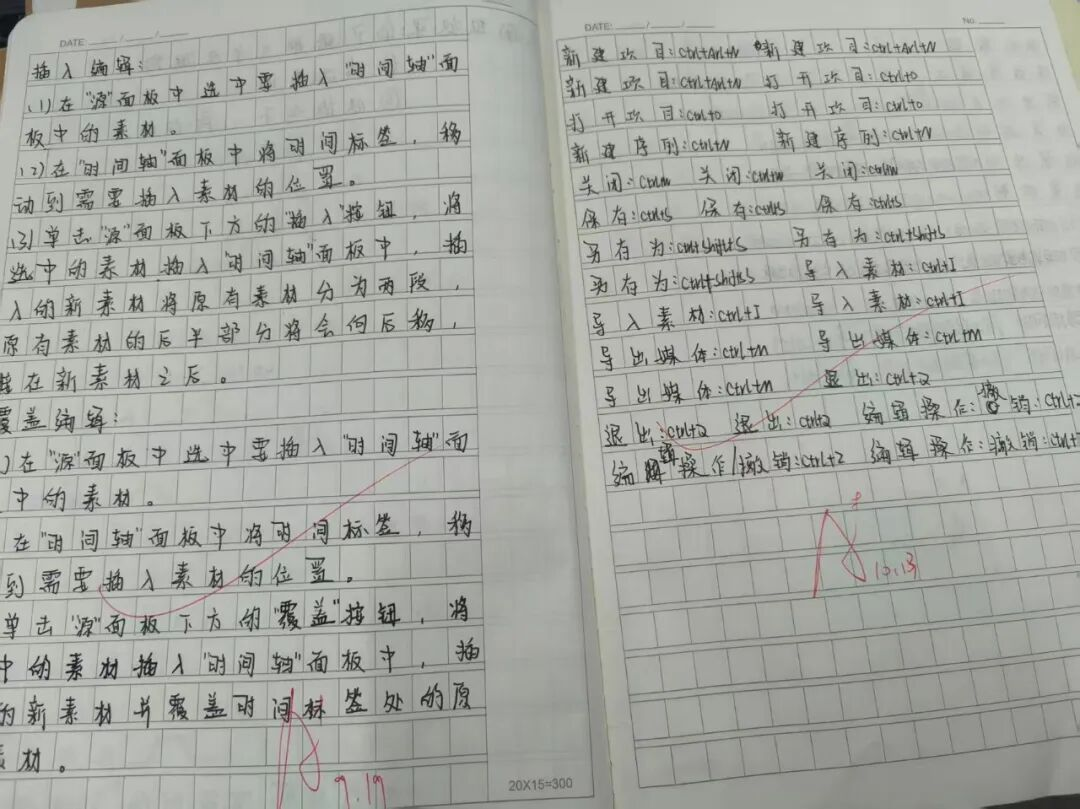 DATE ___/___/___
插入编辑:
(1)在"源"面板中选中要插入"时间轴"面
板中的素材。
(2)在"时间轴"面板中将时间标签,移
动到需要插入素材的位置。
(3)单击"源"面板下方的"插入"按钮,将
选中的素材插入"时间轴"面板中,插
入的新素材将原有素材分为两段,
原有素材的后半部分将会向后移,
在新素材之后。
覆盖编辑:
)在"源"面板中选中要插入"时间轴"面
中的素材。
在"时间轴"面板中将时间标签,移
到需要插入素材的位置。
单击"源"面板下方的"覆盖"按钮,将
中的素材插入"时间轴"面板中,插
的新素材并覆盖时间标签处的原
素材。
9.19
20X15=300
DATE: ___/___/___ No. ___
新建项目:ctrl+Art+N 新建项目:ctrl+Art+N
新建项目:ctrl+Art+N 打开项目:ctrl+o
打开项目:ctrl+o 打开项目:ctrl+o
新建序列:ctrl+N 新建序列:ctrl+N
关闭:Ctrl+w 关闭:ctrl+w 关闭:ctrl+w
保存:ctrl+s 保存:ctrl+s 保存:ctrl+s
另存为:ctrl+shift+S 另存为:ctrl+shift+s
另存为:ctrl+shift+s 导入素材:ctrl+I
导入素材:ctrl+I 导入素材:ctrl+I
导出媒体:ctrl+m 导出媒体:ctrl+m
导出媒体:Ctrl+m 退出:ctrl+Q
退出:ctrl+Q 退出:ctrl+Q 编辑操作:撤销:Ctrl+Z
编辑操作/撤销:Ctrl+Z 编辑操作:撤销:Ctrl+Z
A 10.13